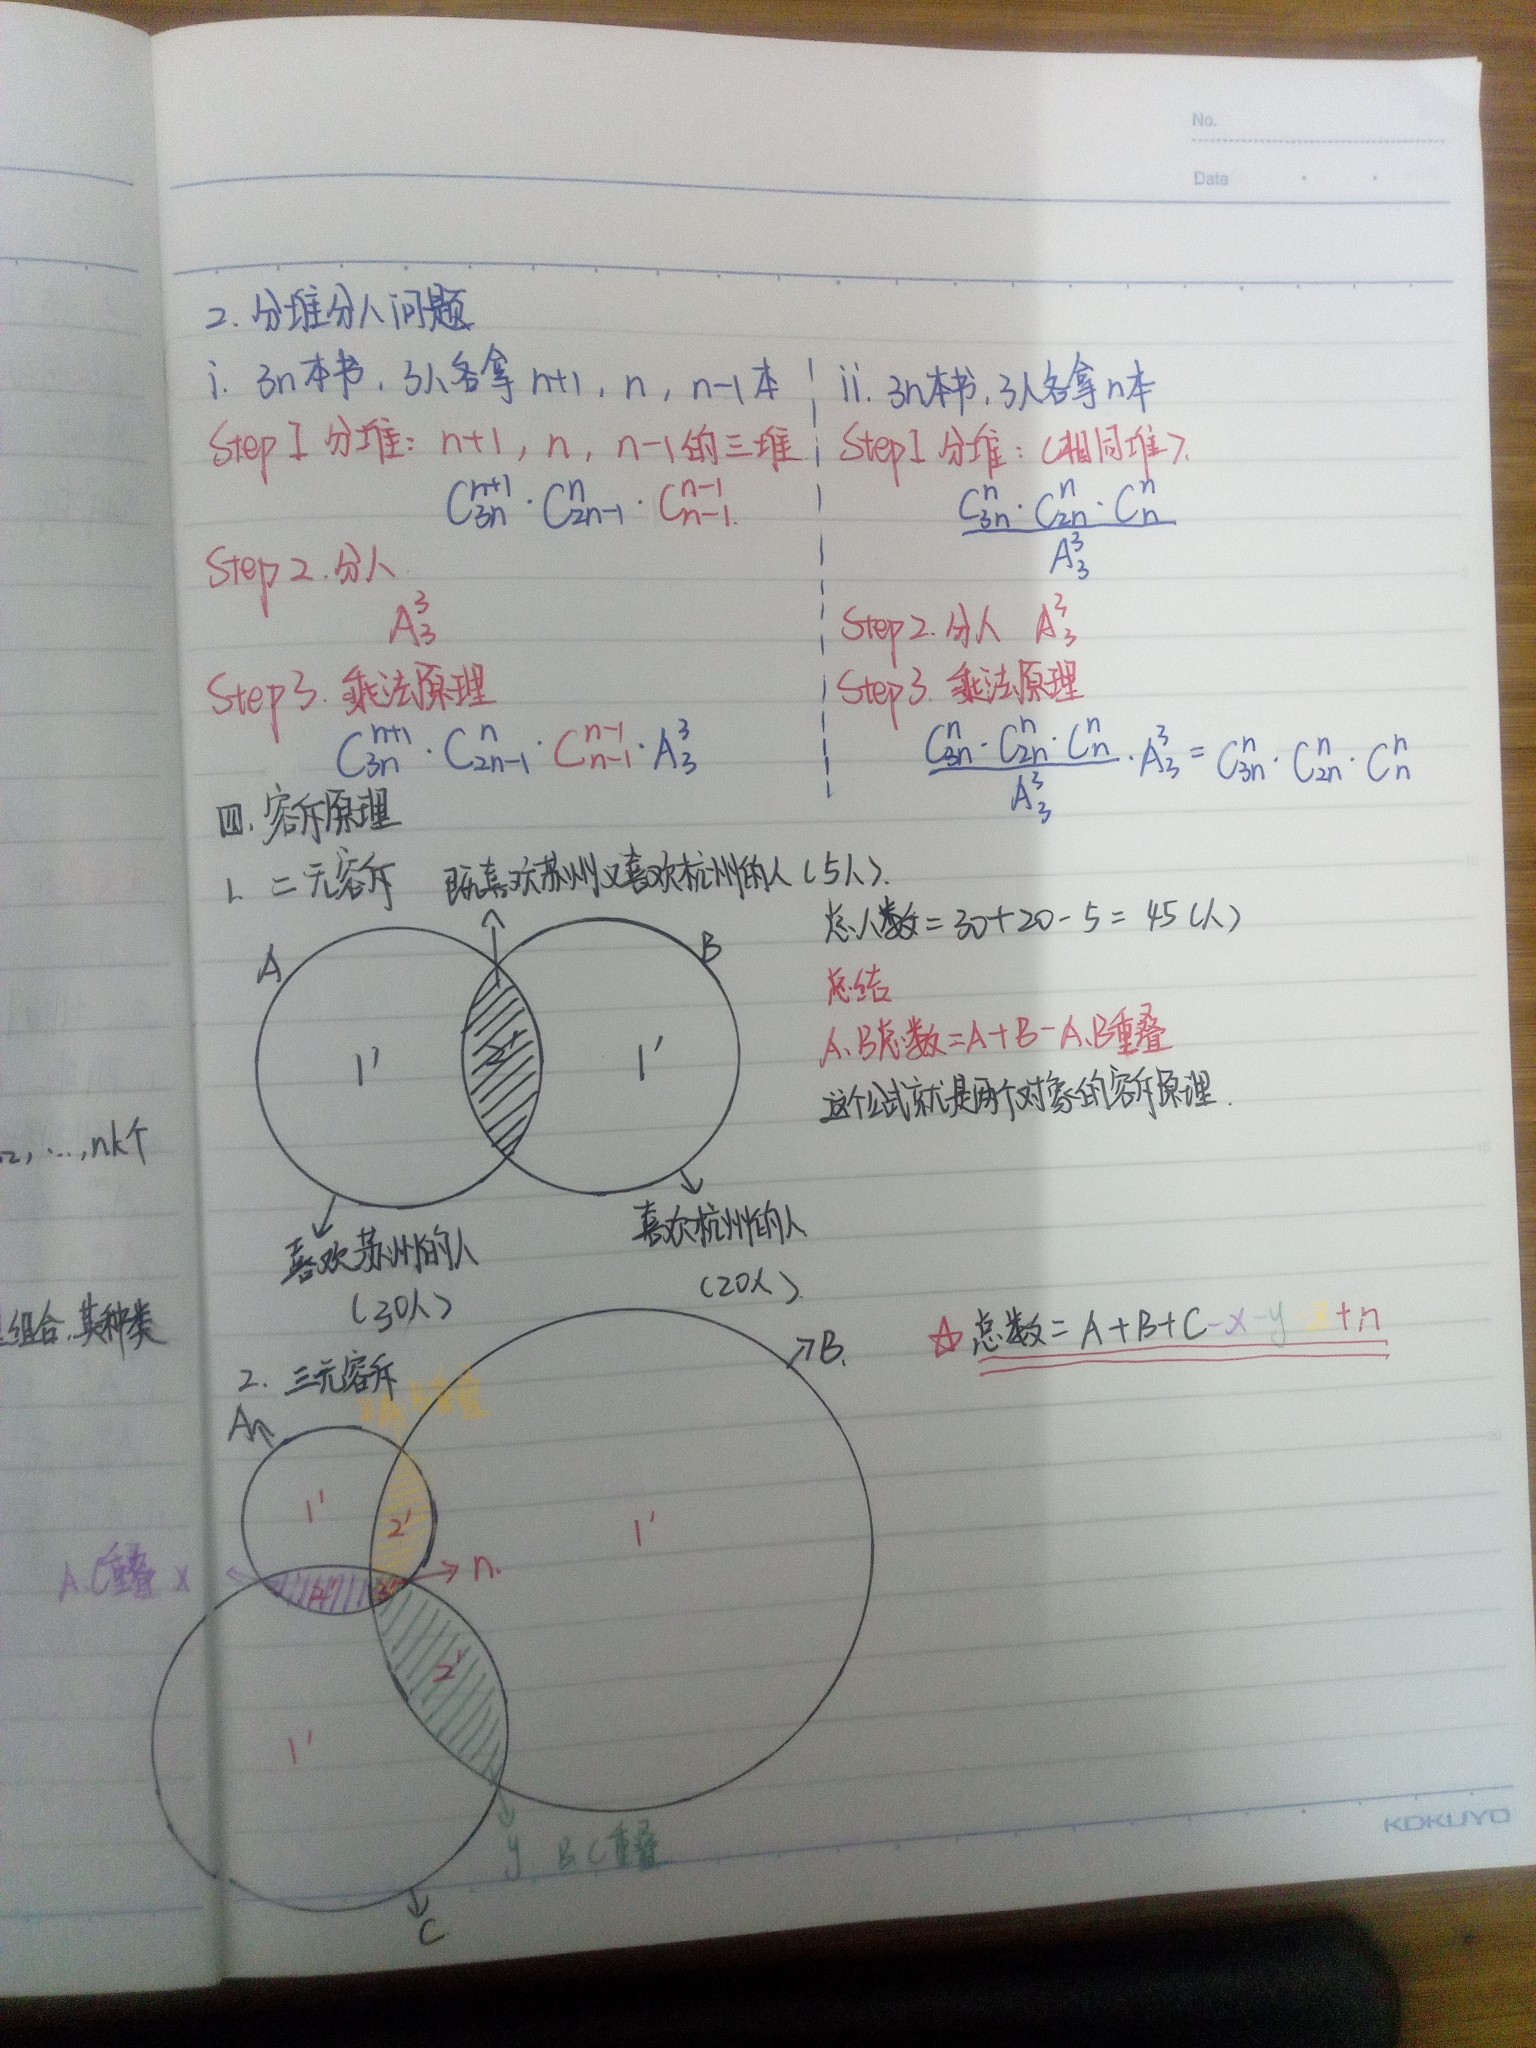 No.
Date
2. 分堆分人问题
i. 3n本书,3人各拿 n+1, n, n-1本
Step 1 分堆: n+1, n, n-1的三堆
C_{3n}^{n+1} · C_{2n-1}^{n} · C_{n-1}^{n-1}
Step 2. 分人
A_3^3
Step 3. 乘法原理
C_{3n}^{n+1} · C_{2n-1}^{n} · C_{n-1}^{n-1} · A_3^3
ii. 3n本书,3人各拿n本
Step 1 分堆: (相同堆).
\frac{C_{3n}^{n} · C_{2n}^{n} · C_{n}^{n}}{A_3^3}
Step 2. 分人 A_3^3
Step 3. 乘法原理
\frac{C_{3n}^{n} · C_{2n}^{n} · C_{n}^{n}}{A_3^3} · A_3^3 = C_{3n}^{n} · C_{2n}^{n} · C_{n}^{n}
四. 容斥原理
1. 二元容斥 既喜欢苏州又喜欢杭州的人(5人).
A
B
1'
2'
1'
喜欢苏州的人
(30人)
喜欢杭州的人
(20人)
总人数=30+20-5=45(人)
总结
A、B总数=A+B-A、B重叠
这个公式就是两个对象的容斥原理.
2. 三元容斥
☆ 总数=A+B+C-x-y-z+n
A
B.
1'
2'
1'
n.
A.C重叠 x
3'
2'
1'
y B.C重叠
C
2, …, nk个
组合,某种类
KOKUYO